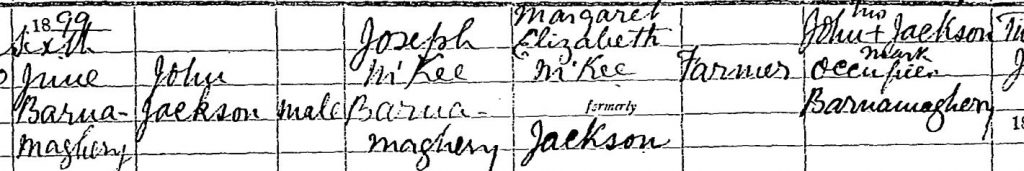 1899
Sixth
June
Barna-
maghery
John
Jackson
male
Joseph
McKee
Barna-
maghery
Margaret
Elizabeth
McKee
formerly
Jackson
Farmer
his
John + Jackson
mark
Occupier
Barnamaghery
18